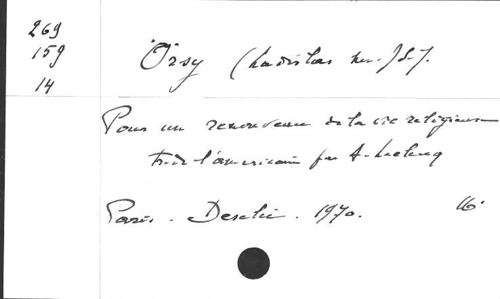 269
159
14
Orsy (Ladislas m. J.S.J.
Pour un renouveau de la vie religieuse
tr. de l'americain par A.
Paris. Desclée. 1970. 16.